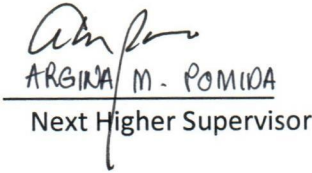 ARGINA M. POMIDA
Next Higher Supervisor